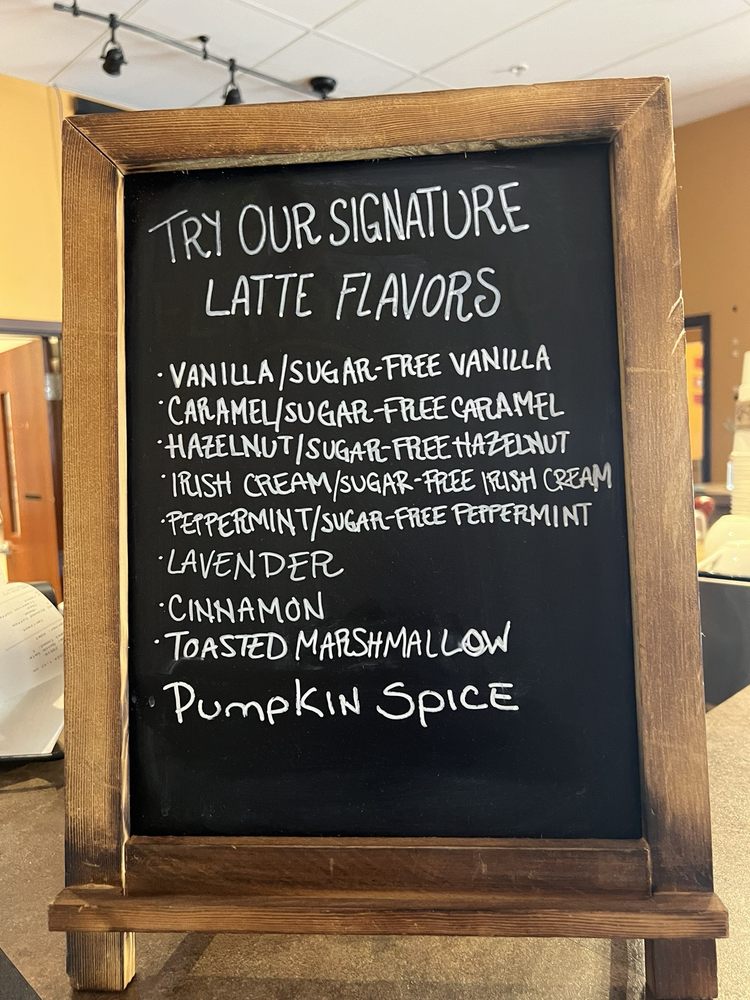 TRY OUR SIGNATURE
LATTE FLAVORS
· VANILLA/SUGAR-FREE VANILLA
· CARAMEL/SUGAR-FREE CARAMEL
· HAZELNUT/SUGAR-FREE HAZELNUT
· IRISH CREAM/SUGAR-FREE IRISH CREAM
· PEPPERMINT/SUGAR-FREE PEPPERMINT
· LAVENDER
· CINNAMON
· TOASTED MARSHMALLOW
PUMPKIN SPICE